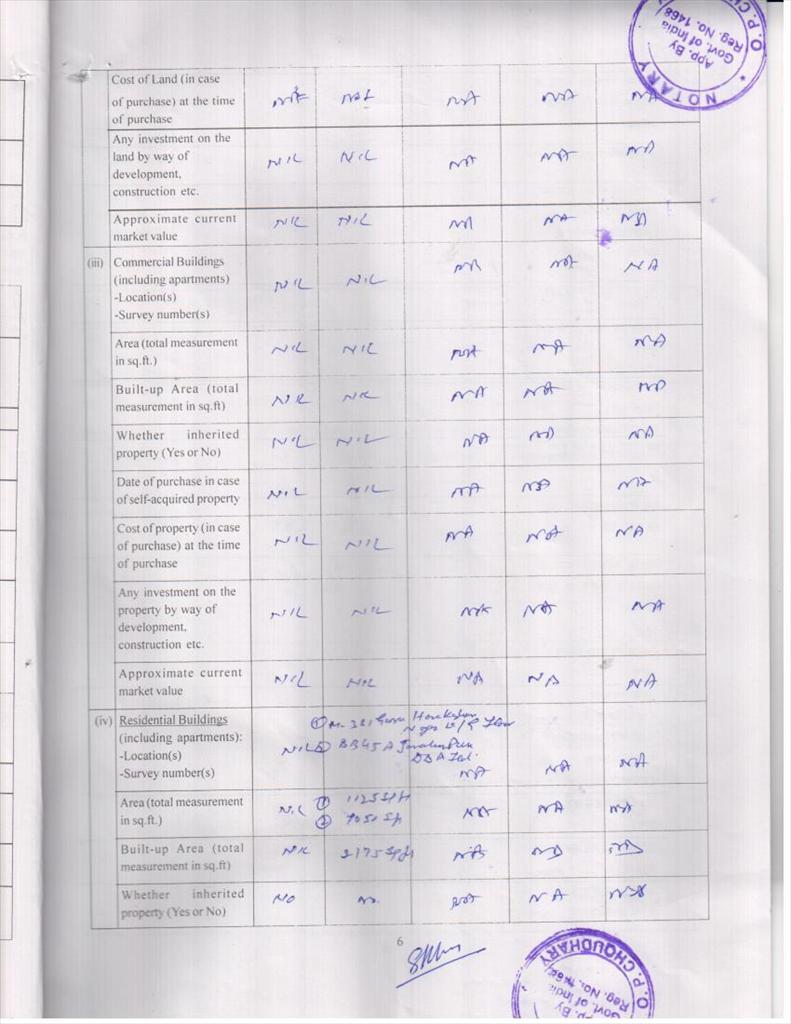 NOTARY
O.P. CH
App. By
Govt. of India
Reg. No. 1468
Cost of Land (in case
of purchase) at the time
of purchase
NA NA NA
Any investment on the
land by way of
development,
construction etc.
NIL NIL NA NA NA
Approximate current
market value
NIL NIL NA NA NA
(iii) Commercial Buildings
(including apartments)
-Location(s)
-Survey number(s)
NIL NIL NA NA NA
Area (total measurement
in sq.ft.)
NIL NIL NA NA NA
Built-up Area (total
measurement in sq.ft)
NIL NIL NA NA NA
Whether inherited
property (Yes or No)
NIL NIL NA NA NA
Date of purchase in case
of self-acquired property
NIL NIL NA NA NA
Cost of property (in case
of purchase) at the time
of purchase
NIL NIL NA NA NA
Any investment on the
property by way of
development,
construction etc.
NIL NIL NA NA NA
Approximate current
market value
NIL NIL NA NA NA
(iv) Residential Buildings
(including apartments):
-Location(s)
-Survey number(s)
NIL
①
② BB45A
NA NA NA
Area (total measurement
in sq.ft.)
NIL ① 1125 Sqft
②
NA NA NA
Built-up Area (total
measurement in sq.ft)
NIL Sqft NA NA NA
Whether inherited
property (Yes or No)
NO NO NA NA NA
6
O.P. CHOUDHARY
Reg. No. 1468
Govt. of India
App. By